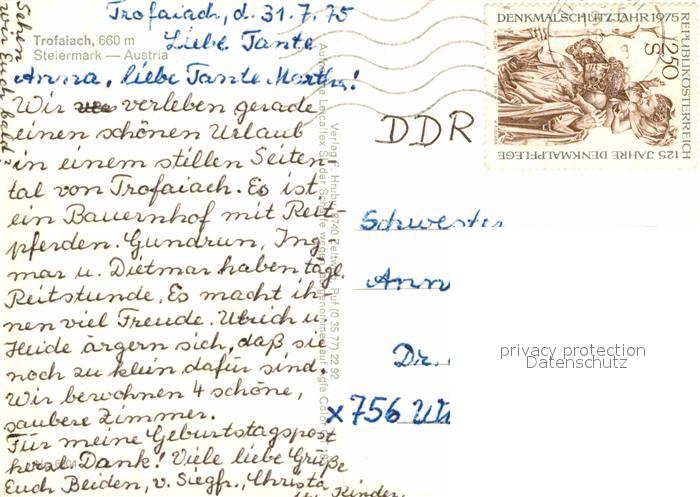 Trofaiach, d. 31.7.75
Trofaiach, 660 m
Liebe Tante
Steiermark — Austria
Anna, liebe Tante Martha!
Wir verleben gerade
einen schönen Urlaub
in einem stillen Seiten-
tal von Trofaiach. Es ist
ein Bauernhof mit Reit-
pferden. Gundrun, Ing-
mar u. Dietmar haben tägl.
Reitstunde. Es macht ih-
nen viel Freude. Ulrich u.
Heide ärgern sich, daß sie
noch zu klein dafür sind.
Wir bewohnen 4 schöne,
saubere Zimmer.
Für meine Geburtstagspost
herzl. Dank! Viele liebe Grüße
Euch Beiden, v. Siegfr., Christa
Kinder
Sehen
wir Euch bald?
DENKMALSCHUTZJAHR 1975
REPUBLIK ÖSTERREICH
S 2.50
125 JAHRE DENKMALPFLEGE
DDR
Schwester
Ann
Dr.
x756
privacy protection
Datenschutz